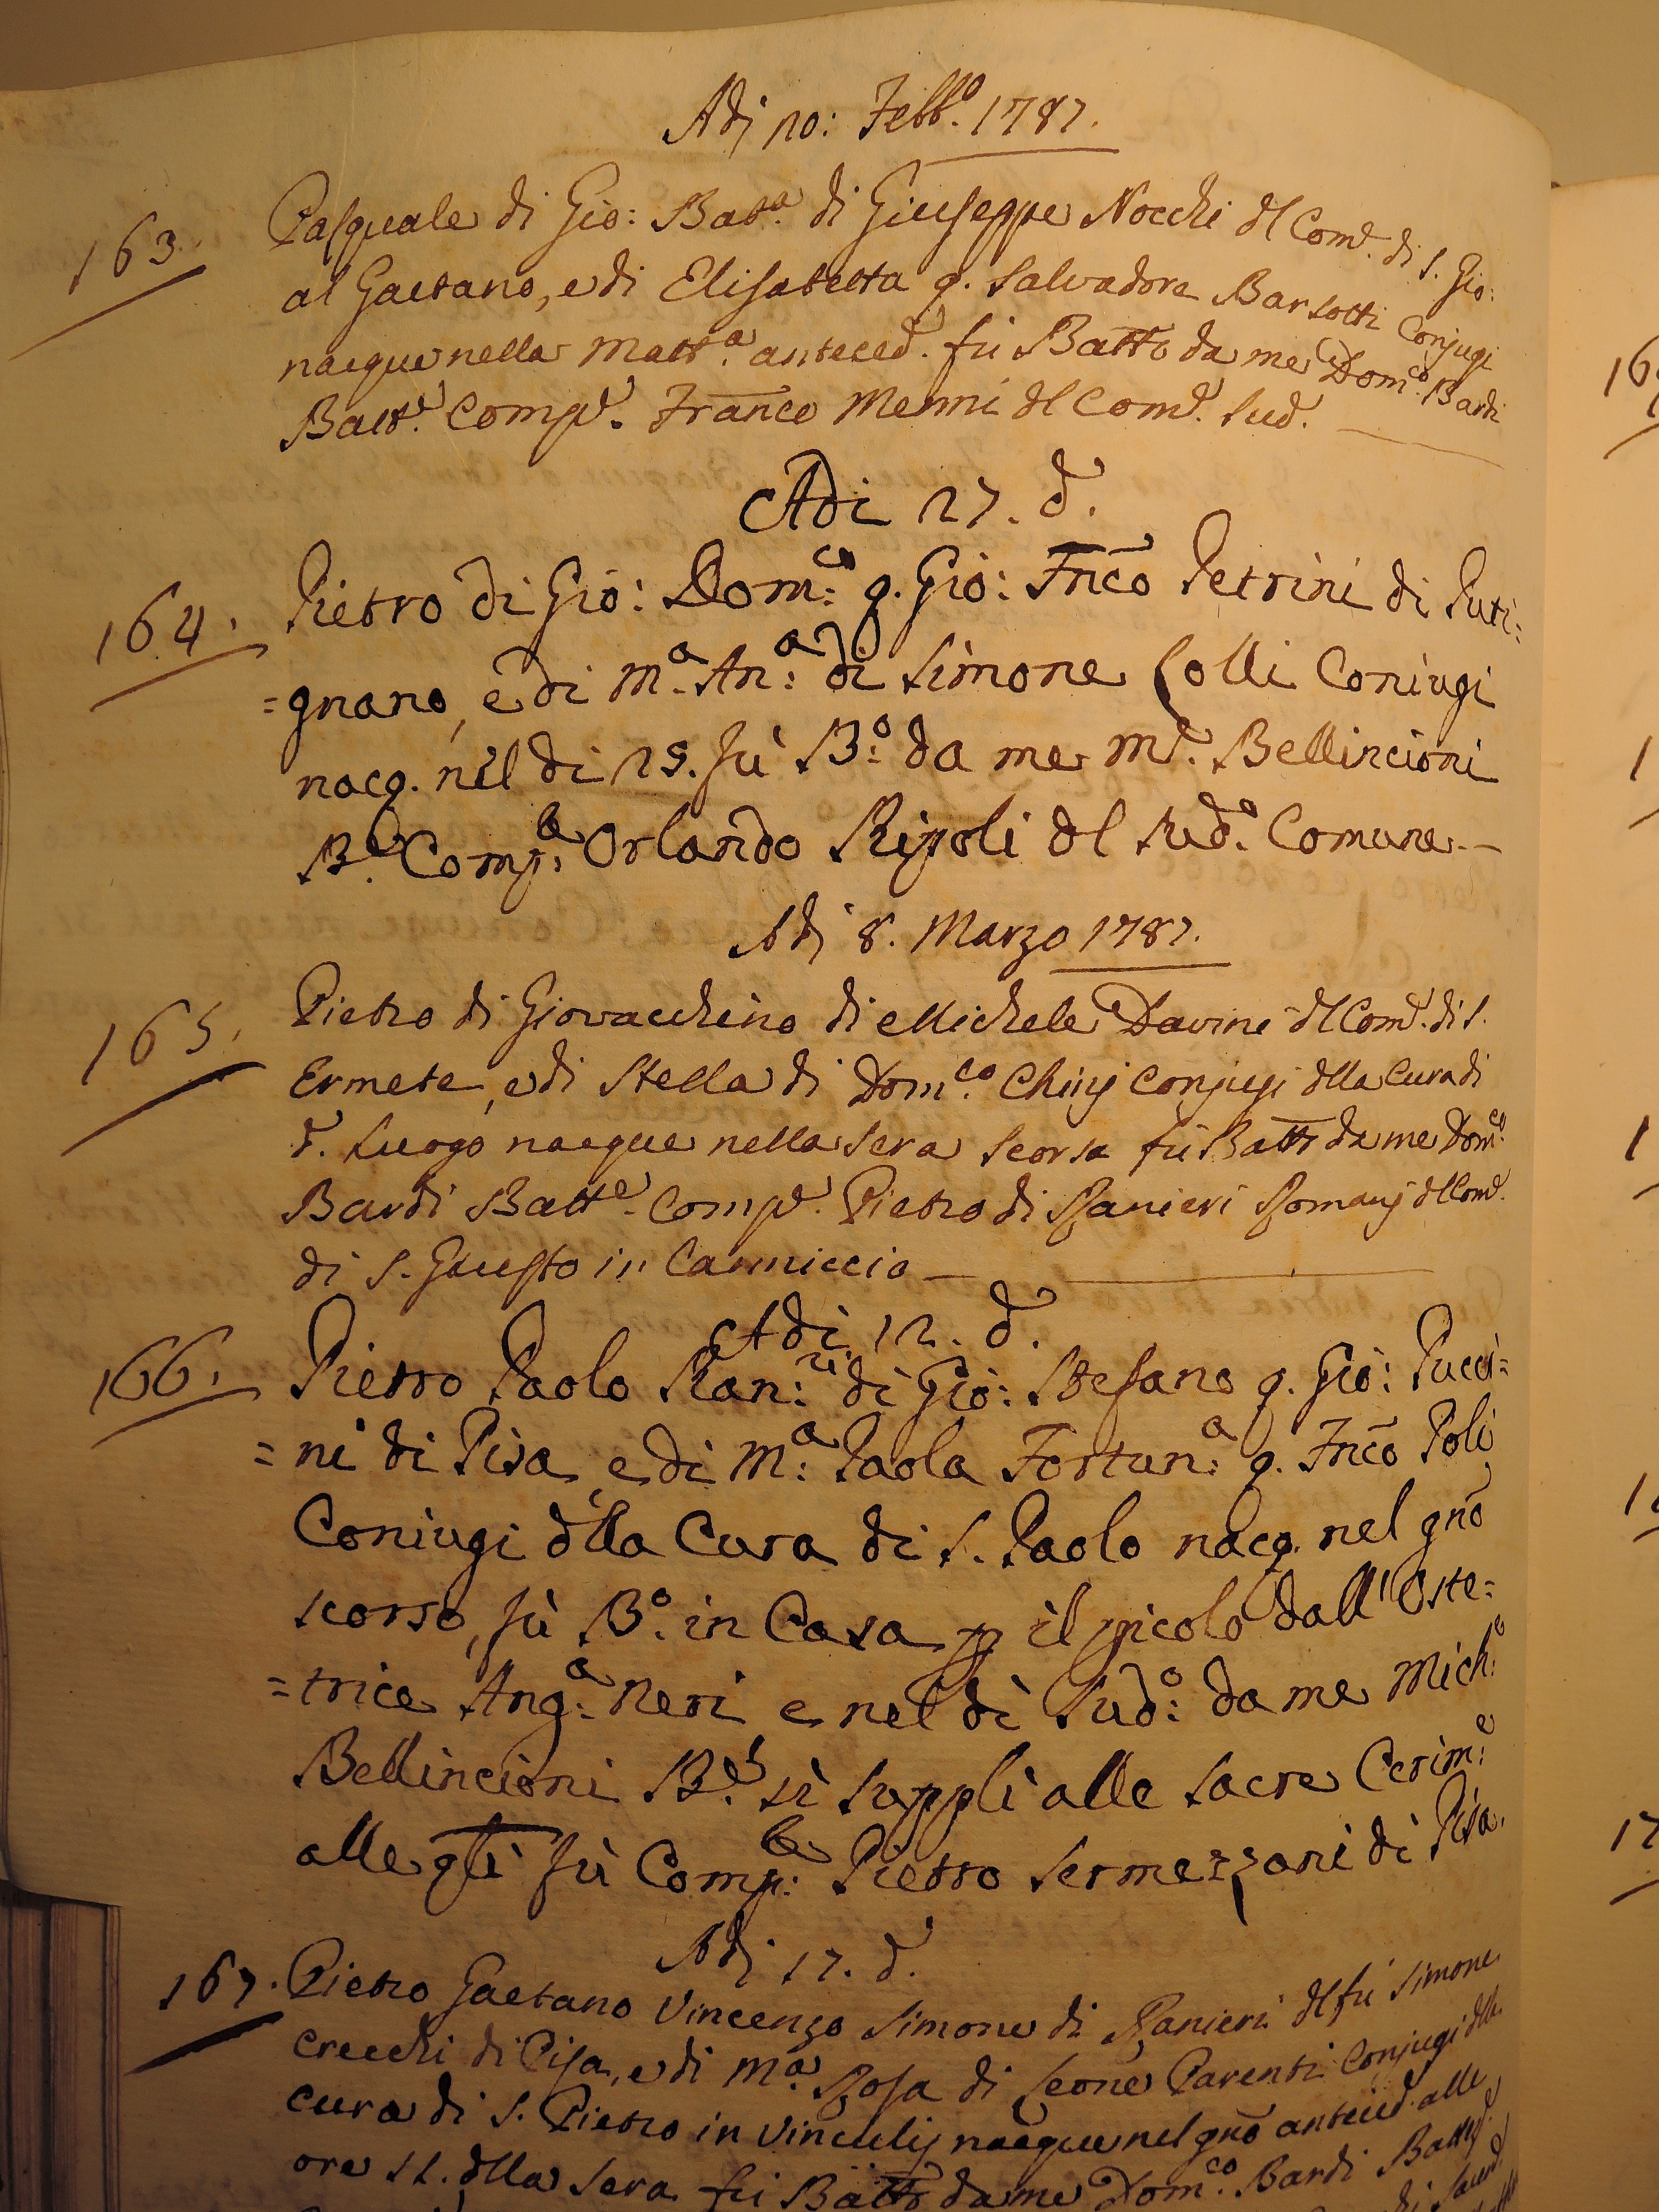 Adj 20: Febb.o 1787.
163. Pasquale di Gio: Batt.a di Giuseppe Nocchi dl Com.e di S. Gio:
al Gaetano, e di Elisabetta q. Salvadore Barsotti Conjugi
nacque nella Matt.a anteced. fù Batto da me Dom.co Bardi
Batt.e Comp.e Franco Menni dl Com.e Sud.
Adi 27. d.
164. Pietro di Gio: Dom.co q. Gio: Fnco Petrini di Puti=
=gnano, e di M.a An.a di Simone Colli Coniugi
nacq. nel di 25. fù B.o da me M.e Bellincioni
B.e Comp.e Orlando Ripoli dl Sud.o Comune
Adj 8. Marzo 1787.
165. Pietro di Giovacchino di Michele Davini dl Com.e di S.
Ermete, e di Stella di Dom.co Chinj Conjugi dlla Cura di
d. Luogo nacque nella Sera Scorsa fù Batto da me Dom.co
Bardi Batt.e Comp.e Pietro di Ranieri Romanj dl Com.e
di S. Giusto in Canniccio
Adi 12. d.
166. Pietro Paolo Ran.ri di Gio: Stefano q. Gio: Pucci=
=ni di Pisa, e di M.a Paola Fortun.a q. Fnco Poli
Coniugi dlla Cura di S. Paolo nacq. nel gno
scorso, fù B.o in Casa p il picolo dall'Oste=
=trice Ang.a Neri e nel dì Sud.o da me Mich.e
Bellincioni B.e si supplì alle Sacre Cerim.e
alle qli fù Comp.e Pietro Sermezzani di Pisa.
Adj 17. d.
167. Pietro Gaetano Vincenzo Simone di Ranieri dl fù Simone
Crecchi di Pisa, e di M.a Rosa di Leone Parenti Conjugi dlla
cura di S. Pietro in Vinculis nacque nel gno anteced. alle
ore 11. dlla Sera fù Batto da me Dom.co Bardi Batt.e